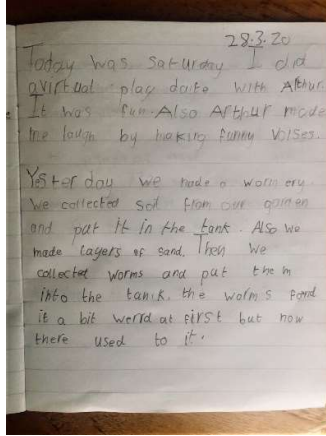 28.3.20
Today was saturday I did
a virtual play daite with Arthur.
It was fun. Also Arthur made
me laugh by making funny voises.
Yesterday we made a wormery.
We collected soil from our garden
and put it in the tank. Also we
made layers of sand. Then we
collected worms and put them
into the tank. the worms fond
it a bit werrd at first but now
there used to it.